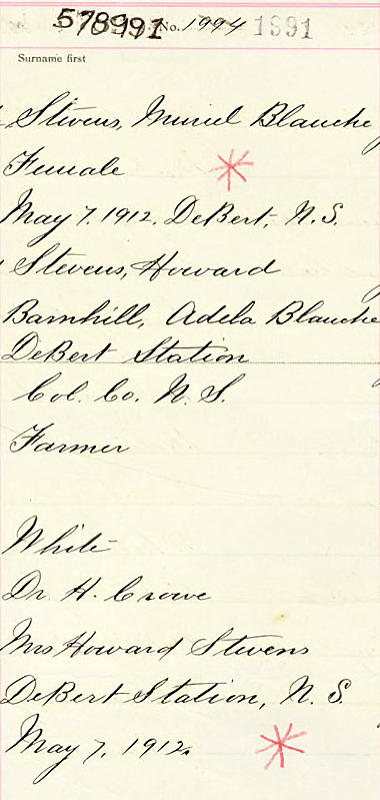 578991 No. 1994 1991
Surname first
Stevens, Muriel Blanche
Female
May 7. 1912. DeBert, N.S.
Stevens, Howard
Barnhill, Adela Blanche
DeBert Station
Col. Co. N. S.
Farmer
White
Dr. H. Crowe
Mrs Howard Stevens
DeBert Station, N. S.
May 7, 1912.